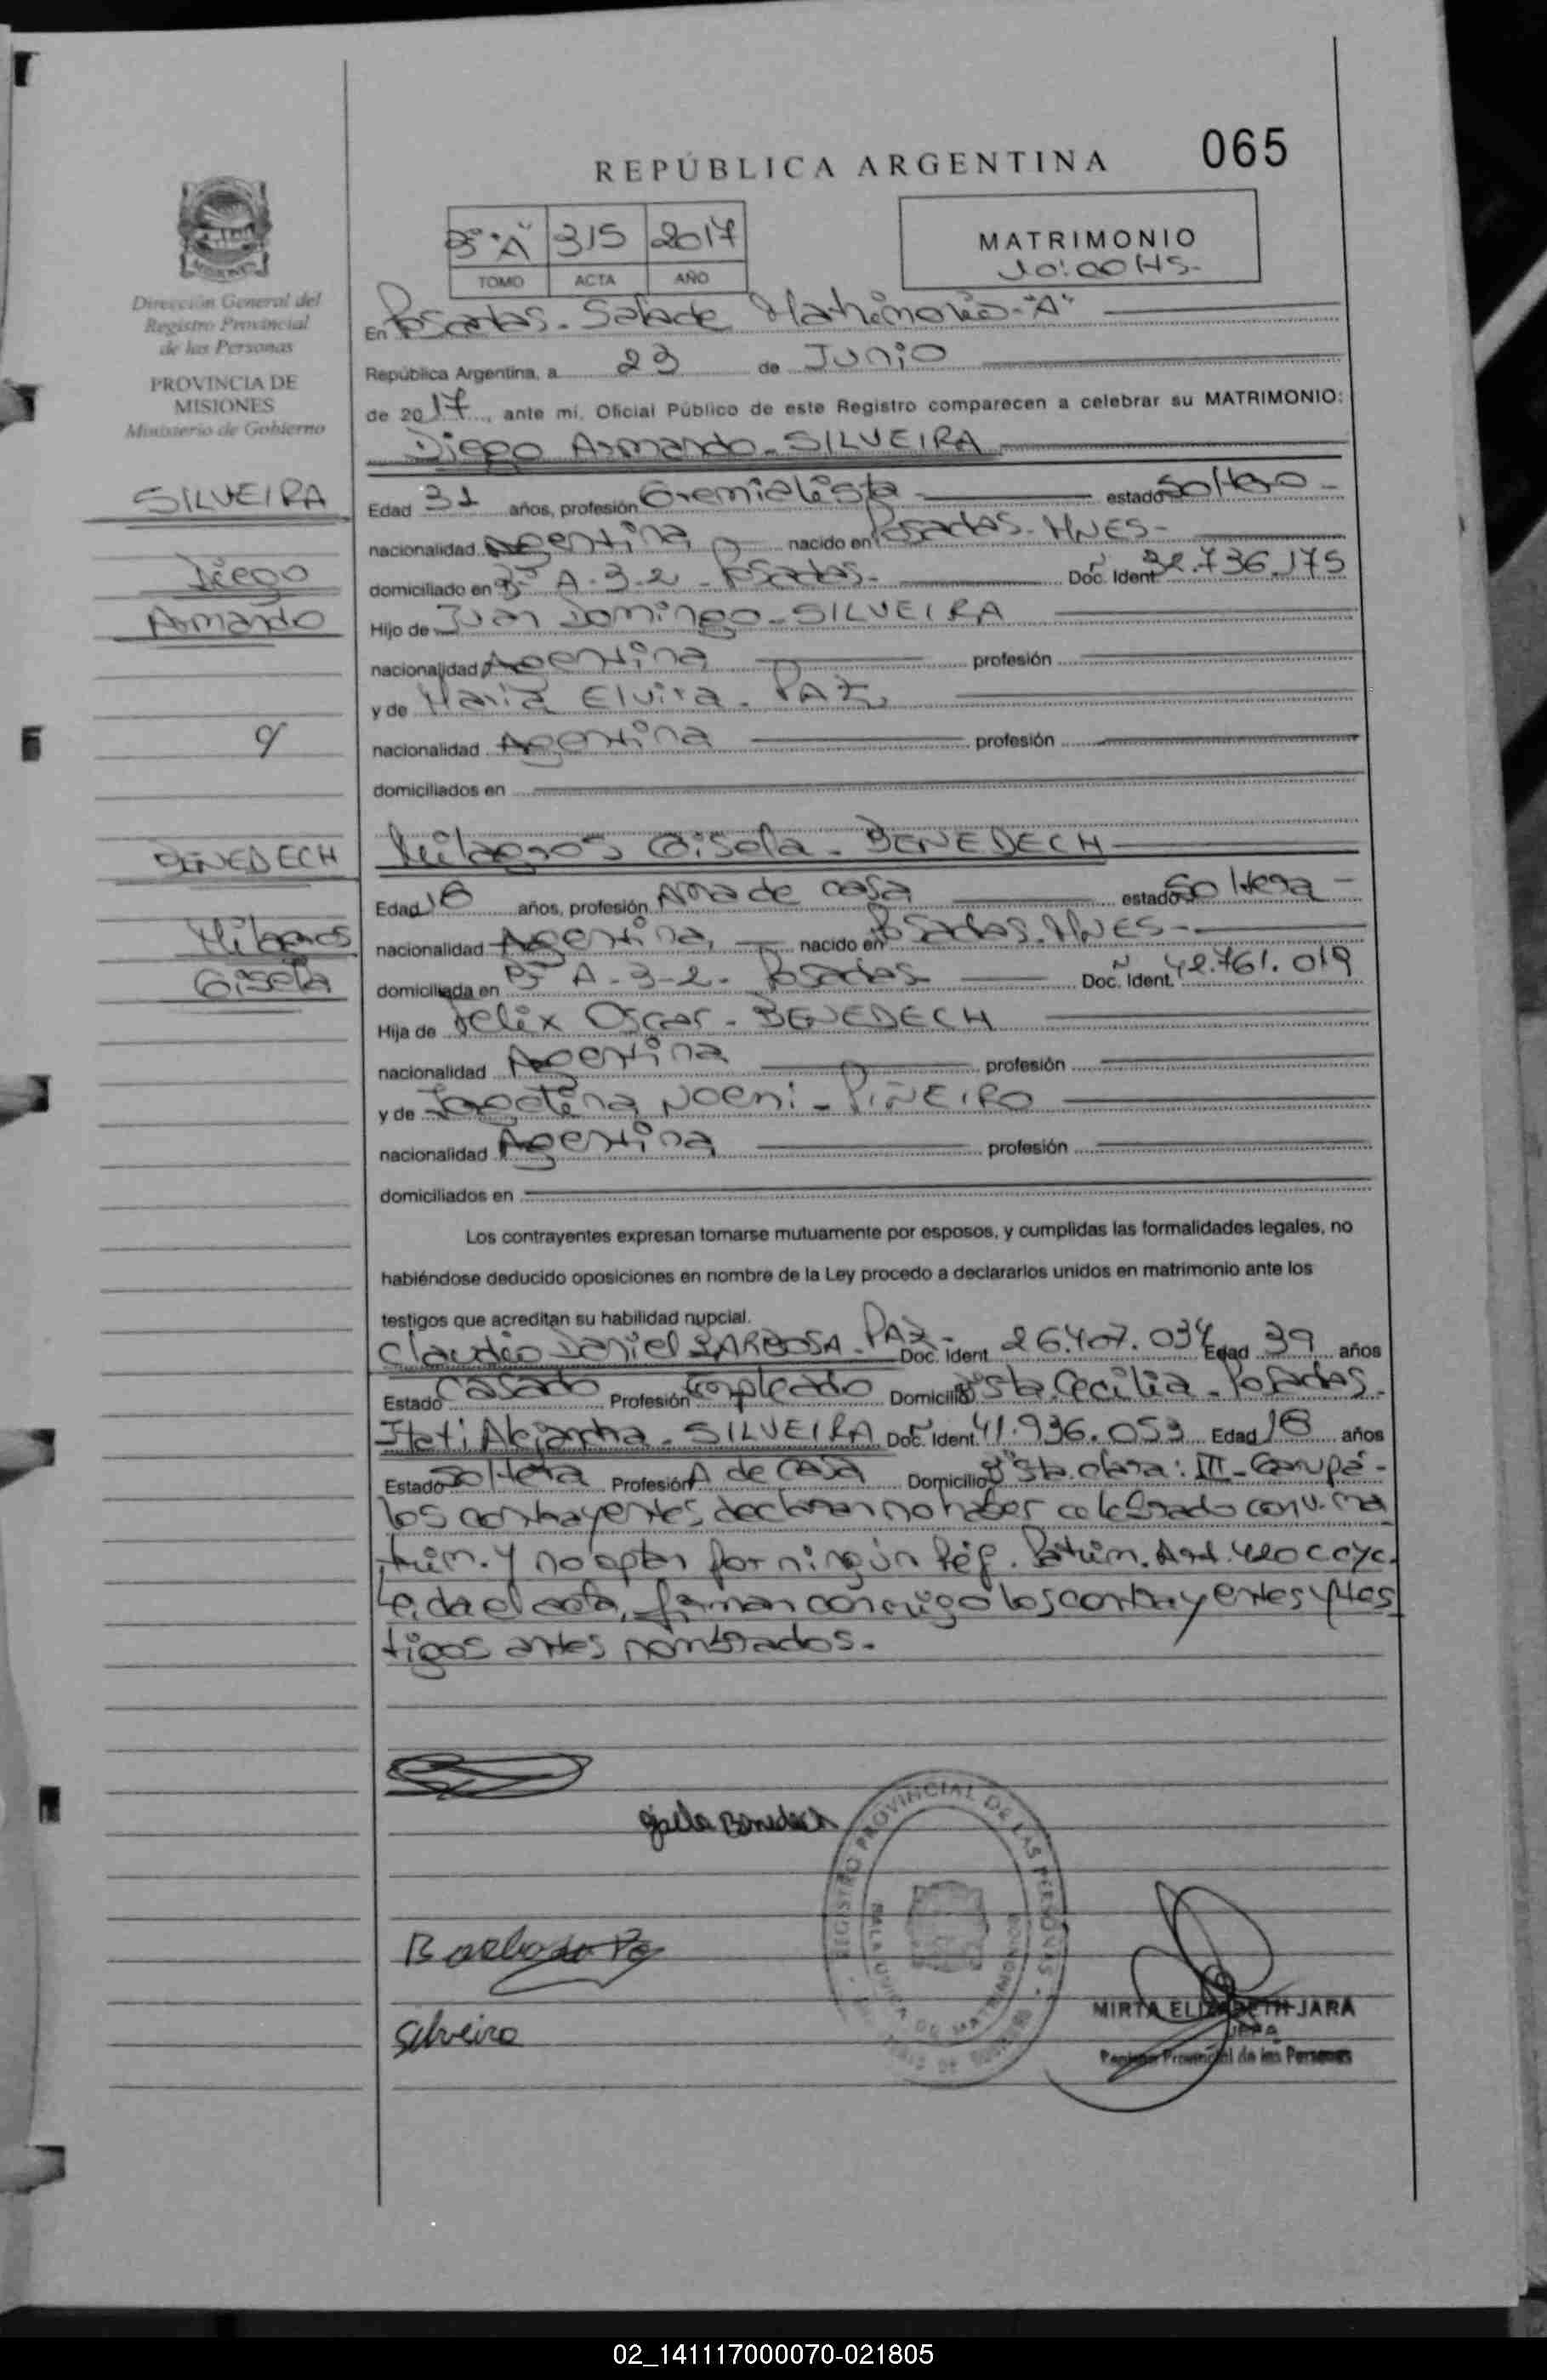 065
REPÚBLICA ARGENTINA
3° "A" 315 2017
TOMO ACTA AÑO
MATRIMONIO
10:00 HS-
Dirección General del
Registro Provincial
de las Personas
PROVINCIA DE
MISIONES
Ministerio de Gobierno
En Posadas. Sala de Matrimonio "A"
República Argentina, a 23 de Junio
de 2017, ante mi, Oficial Público de este Registro comparecen a celebrar su MATRIMONIO:
Diego Armando - SILVEIRA
SILVEIRA
Diego
Armando
Edad 31 años, profesión Gremialista estado Soltero -
nacionalidad Argentina nacido en Posadas. MNES-
domiciliado en A-3-2 - Posadas- Doc. Ident. 32.736.175
Hijo de Juan Domingo - SILVEIRA
nacionalidad Argentina profesión
y de María Elvira - PAZ
nacionalidad Argentina profesión
domiciliados en
Milagros Gisela - BENEDECH
BENEDECH
Milagros
Gisela
Edad 18 años, profesión Ama de casa estado Soltera -
nacionalidad Argentina nacido en Posadas. MNES-
domiciliada en A-3-2- Posadas Doc. Ident. 42.761.019
Hija de Felix Oscar - BENEDECH
nacionalidad Argentina profesión
y de Noemi - PIÑEIRO
nacionalidad Argentina profesión
domiciliados en
Los contrayentes expresan tomarse mutuamente por esposos, y cumplidas las formalidades legales, no
habiéndose deducido oposiciones en nombre de la Ley procedo a declararlos unidos en matrimonio ante los
testigos que acreditan su habilidad nupcial.
Claudio Daniel BARBOSA - PAZ - Doc. Ident. 26.407.034 Edad 39 años
Estado Casado Profesión Empleado Domicilio Sta. Cecilia - Posadas.
Itati Alejandra - SILVEIRA Doc. Ident. 41.936.053 Edad 18 años
Estado Soltera Profesión A de casa Domicilio Sta. Clara: III - Garupá -
los contrayentes declaran no haber celebrado conv. ma
trim. y no optan por ningún Rég. Patrim. Art. 420 CCyC.
Leida el acta, firman conmigo los contrayentes y tes
tigos antes nombrados.
Gisela Benedech
REGISTRO PROVINCIAL DE LAS PERSONAS
SALA UNICA DE MATRIMONIOS
Barbosa Paz
Silveira
MIRTA ELIZABETH JARA
JEFA
Registro Provincial de las Personas
02_141117000070-021805